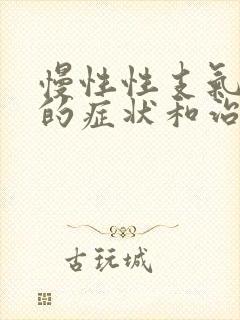 慢性性支氣
的症状和治
古玩城